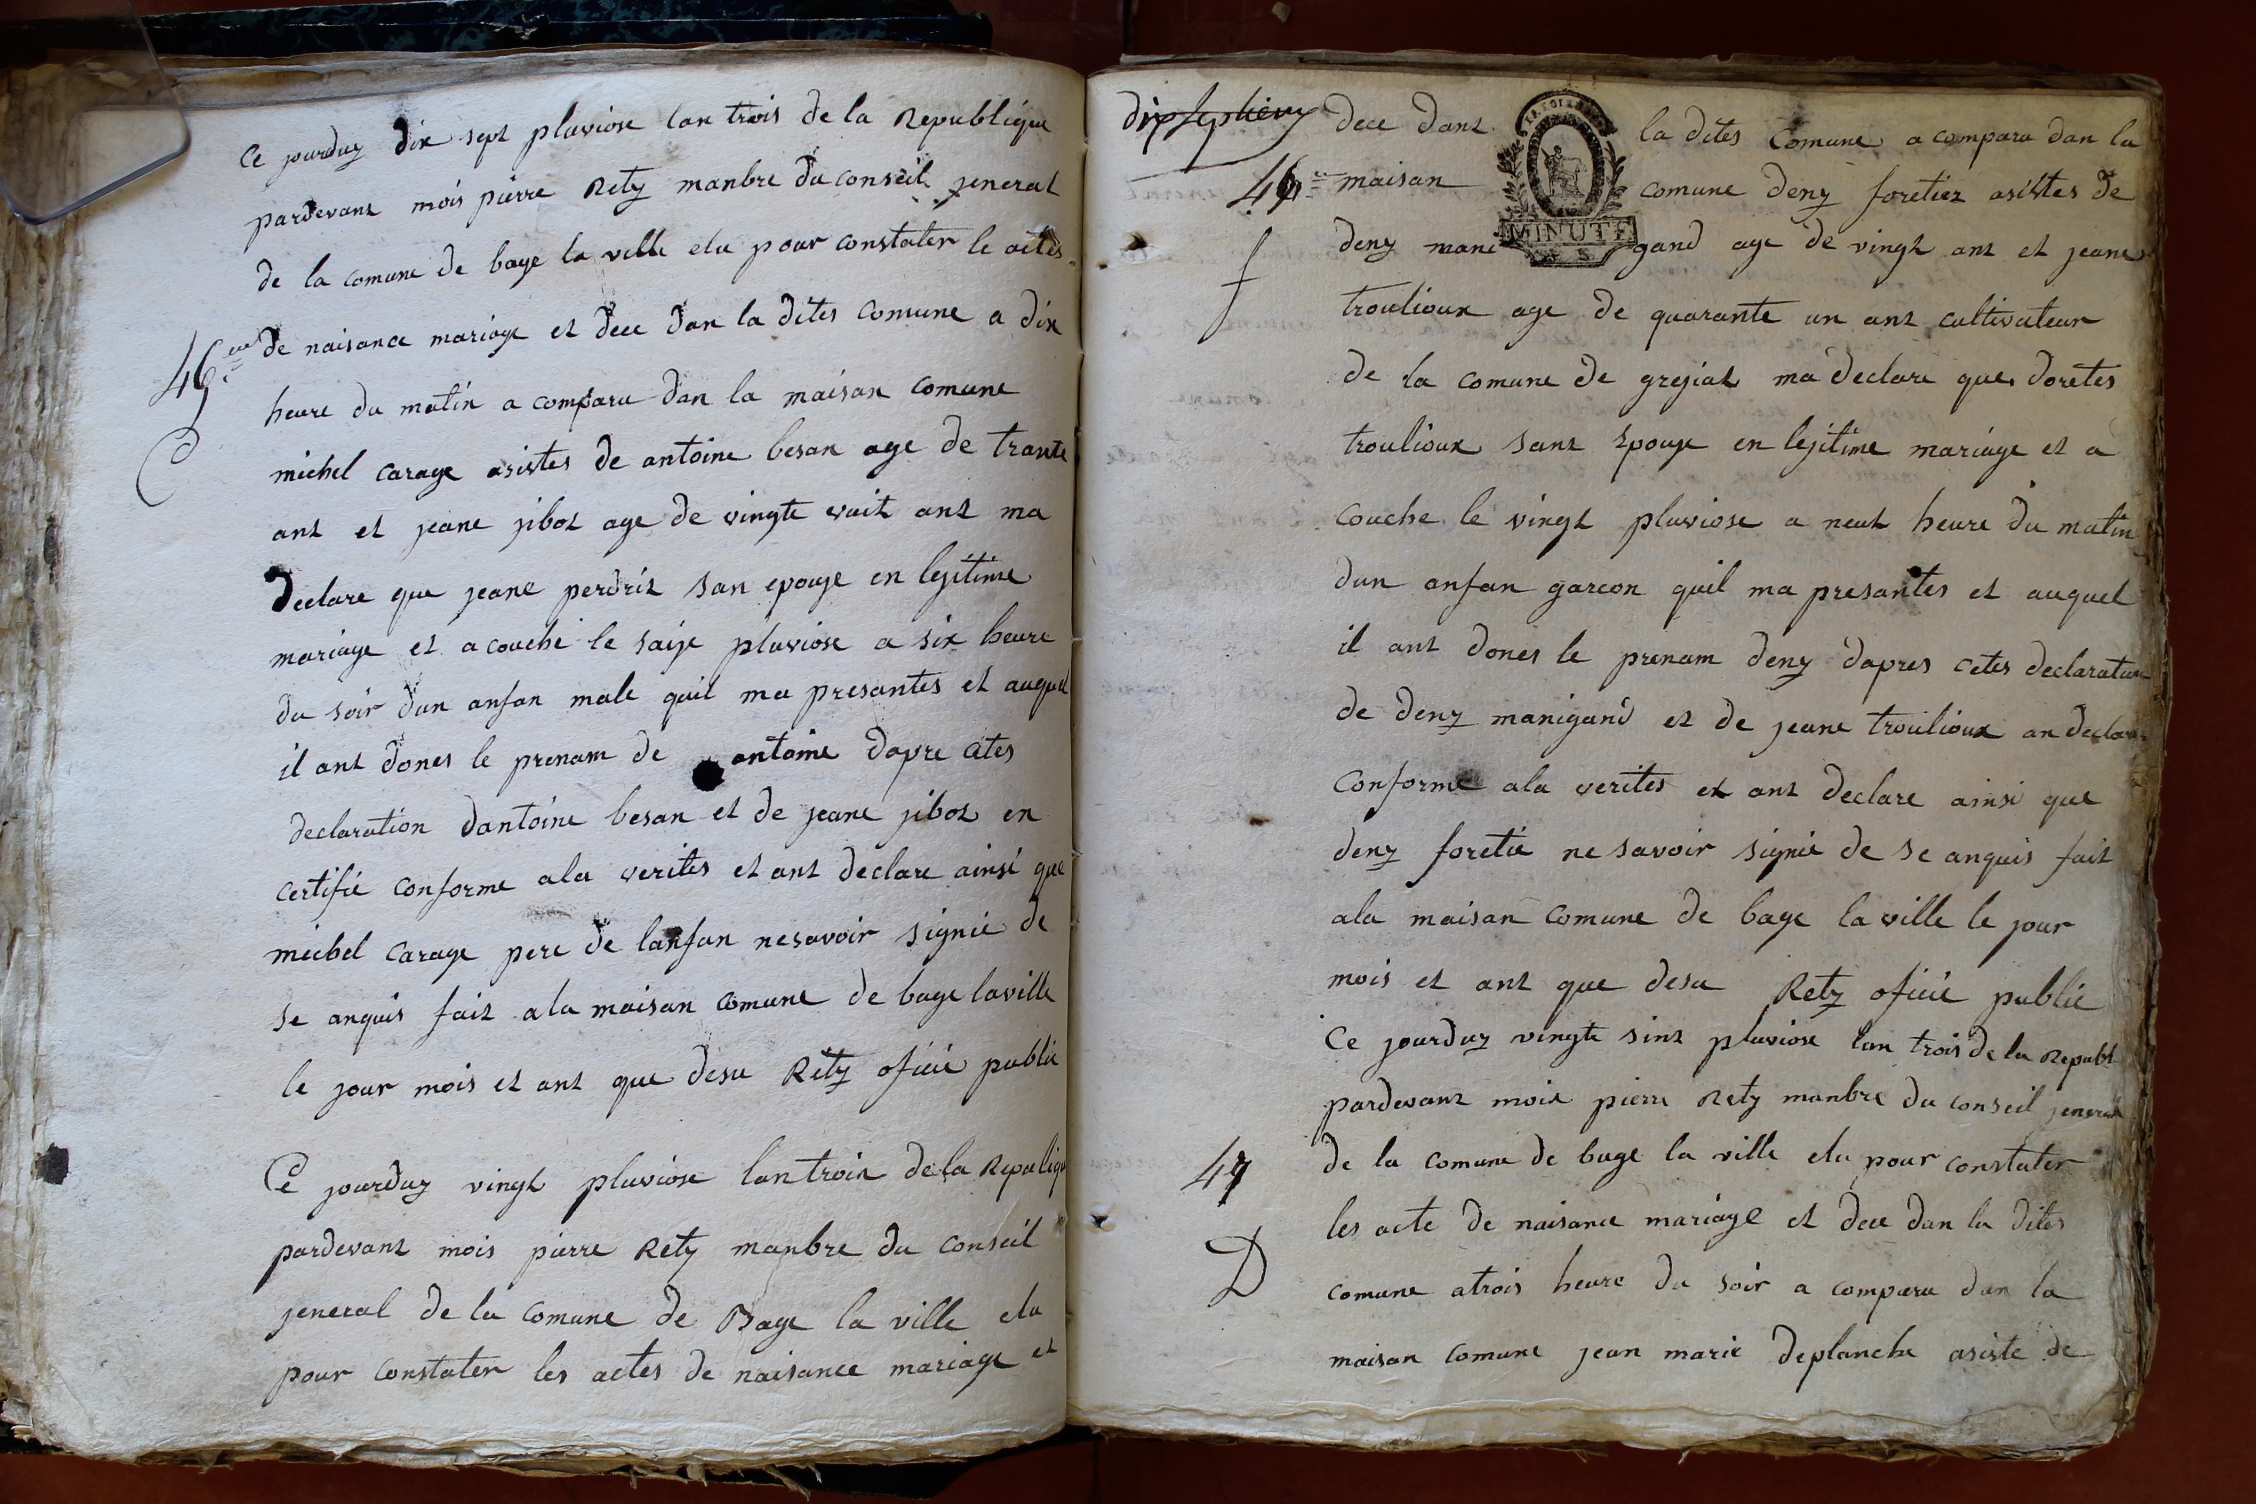 Ce jourduy dix sept pluviose lan trois de la Republique
pardevant mois pierre Rety manbre du conseil jeneral
de la comune de bage la ville elu pour constater le actes
46eme
de naisance mariage et dece dan la dites comune a dix
heure du matin a comparu dan la maison comune
C
michel carage asistes de antoine besan age de trante
ant et jeane jibot age de vingte wuit ant ma
declare que jeane perdrit san epouse en lejitime
mariage et a couche le saize pluviose a six heure
du soir dun anfan male quil ma presantes et auquel
il ant dones le prenam de antoine dapre cetes
declaration dantoine besan et de jeane jibot en
certifie conforme ala verites et ant declare ainsi que
michel carage pere de lanfan ne savoir signie de
se anquis fait ala maison comune de bage laville
le jour mois et ant que desu Rety oficié publie
Ce jourduy vingt pluviose lan troix de la Republique
pardevant mois pierre Rety manbre du conseil
jeneral de la comune de Bage la ville elu
pour constater les actes de naisance mariage et
dixseptieme
dece dant la dites comune a comparu dan la
46
maison comune deny foretier asistes de
MINUTE
deny mani gand age de vingt ant et jeane
f
troulioux age de quarante un ant cultivateur
de la comune de grejiat ma declare que doretes
troulioux sant epouse en lejitime mariage et a
couche le vingt pluviose a neut heure du matin
dun anfan garcon quil ma presantes et auquel
il ant dones le prenam deny dapres cetes declaration
de deny manigand et de jeane troulioux an declare
conforme ala verites et ant declare ainsi que
deny foretie ne savoir signie de se anquis fait
ala maison comune de bage la ville le jour
mois et ant que desu Rety oficié publie
Ce jourduy vingte sint pluviose lan trois de la Republ
pardevant moix pierre Rety manbre du conseil jeneral
47
de la comune de bage la ville elu pour constater
les acte de naisance mariage et dece dan la dites
D
comune atrois heure du soir a comparu dan la
maison comune jean marie deplanche asiste de